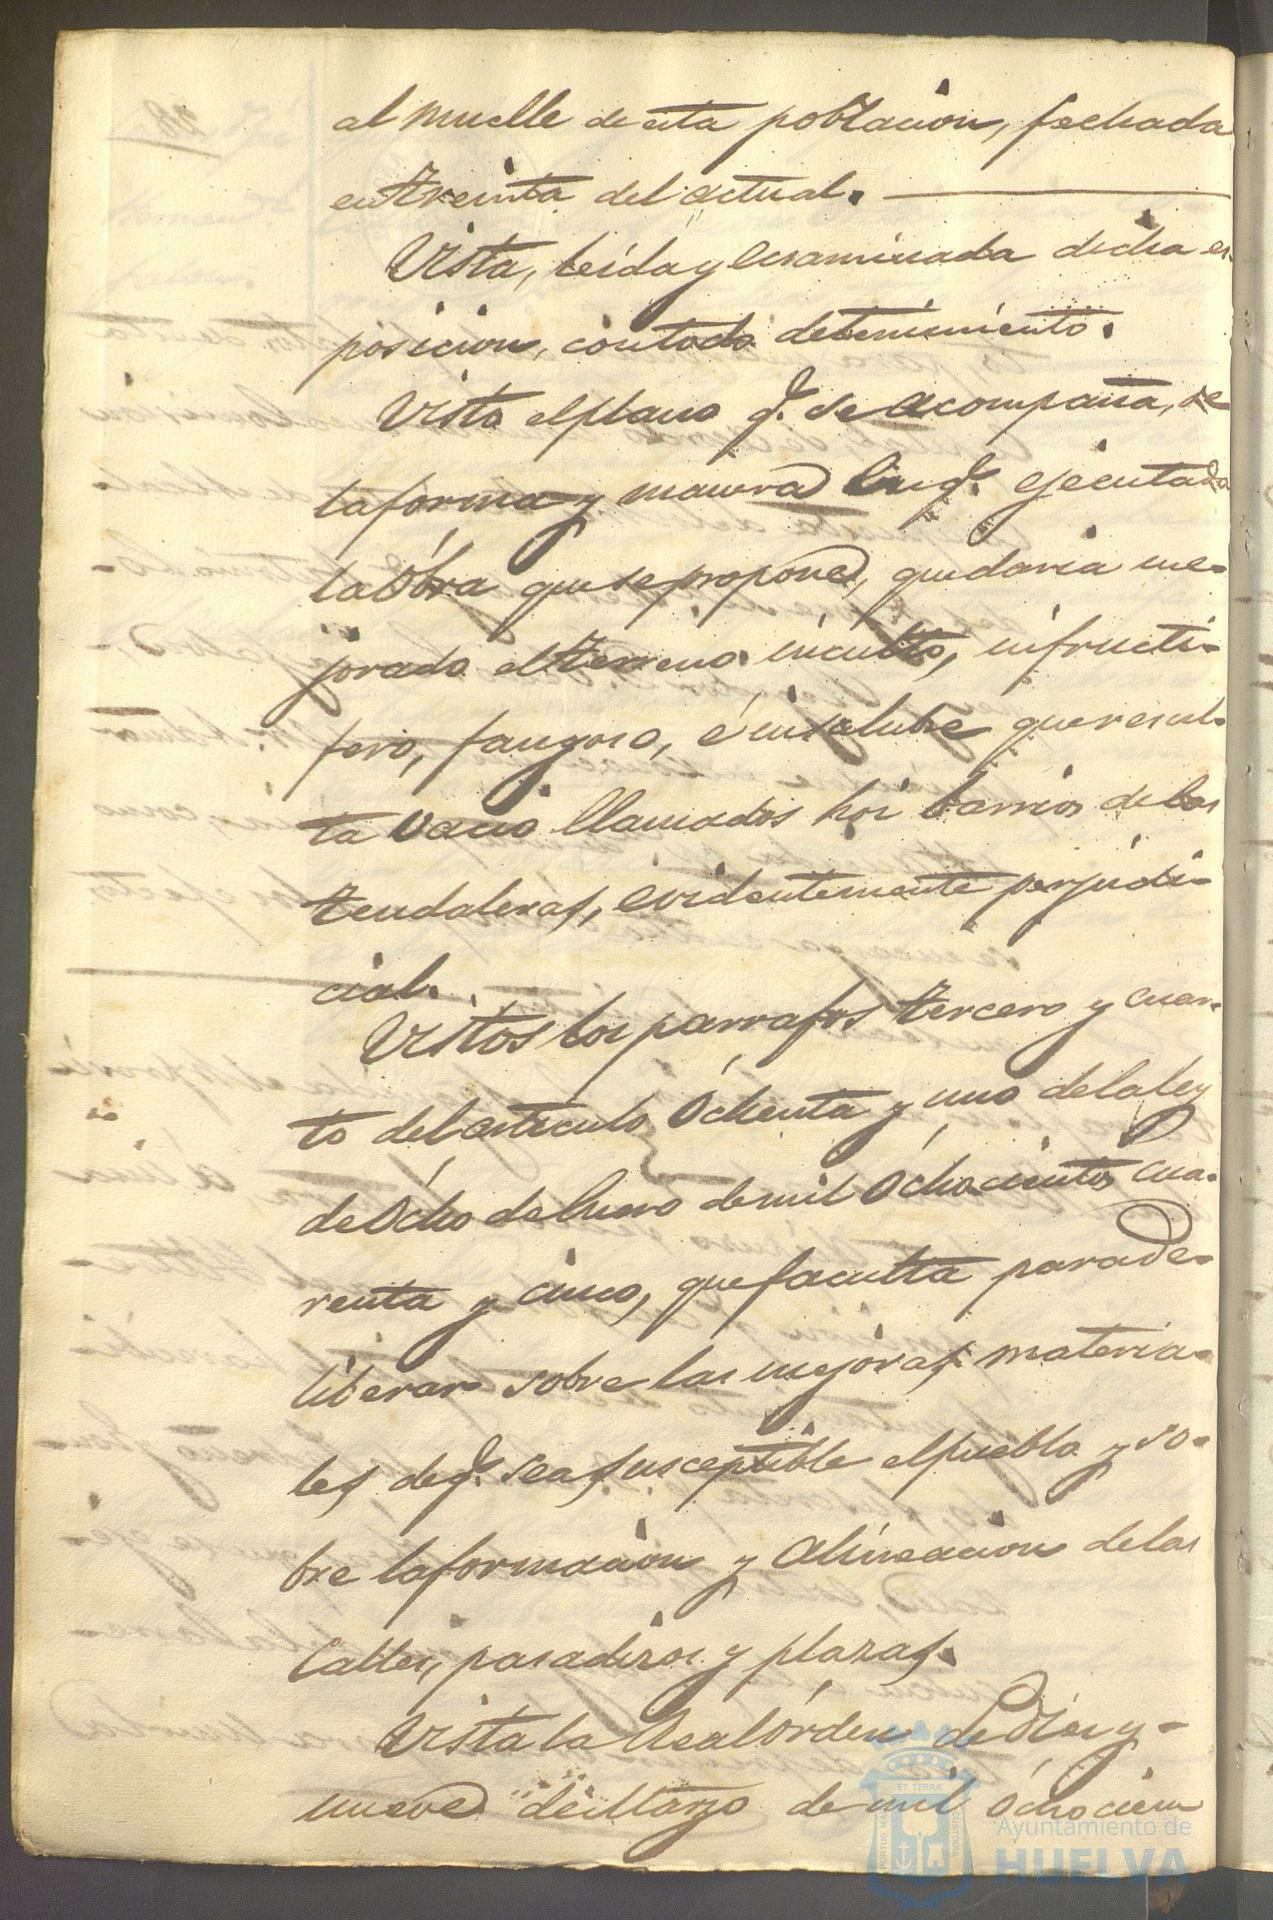 al muelle de esta poblacion, fechada
en treinta del actual.
Vista, leida y ecsaminada dicha es-
posicion, con todo detenimiento.
Visto el plano q.e se acompaña, de
la forma y manera en q.e ejecutada
la Obra que se propone, quedaria me-
jorado el terreno inculto, infructi-
fero, fangoso, é insalubre que resul-
ta vacio llamados hoi barrios de las
tendaleras, evidentemente perjudi-
cial.
Vistos los parrafos tercero y cuar-
to del articulo Ochenta y uno de la ley
de Ócho de Enero de mil Óchocientos cua-
renta y cinco, que faculta para de-
liberar sobre las mejoras materia-
les de q.e sea susceptible el pueblo y so-
bre la formacion y alineacion de las
Calles, pasadizos y plazas.
Vista la Real órden de Diez y-
nueve de Marzo de mil óchocien
Ayuntamiento de
HUELVA